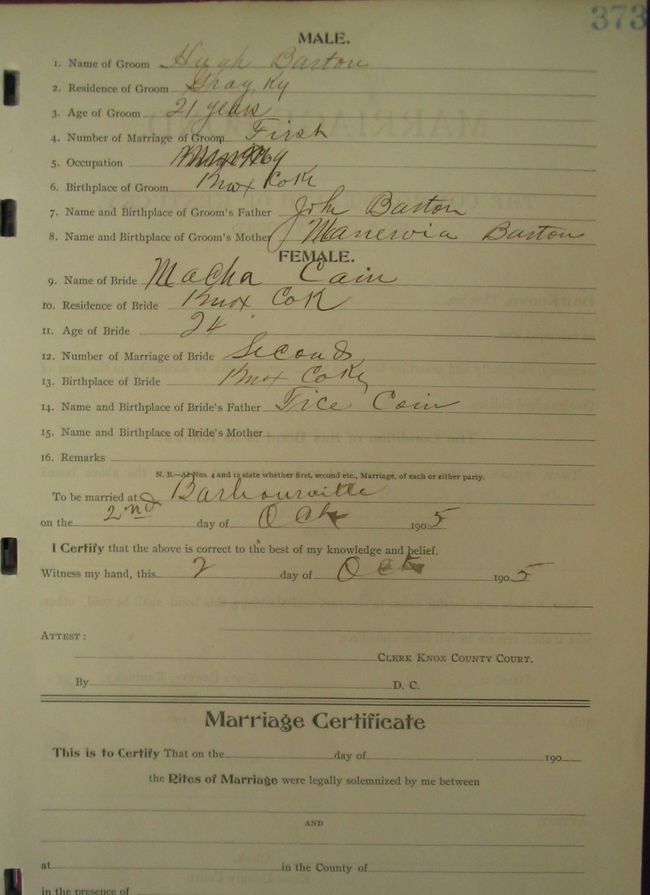 373
MALE.
1. Name of Groom Hugh Barton
2. Residence of Groom Gray, Ky
3. Age of Groom 21 years
4. Number of Marriage of Groom First
5. Occupation
6. Birthplace of Groom Knox Co K
7. Name and Birthplace of Groom's Father John Barton
8. Name and Birthplace of Groom's Mother Manervia Barton
FEMALE.
9. Name of Bride Macha Cain
10. Residence of Bride Knox Co K
11. Age of Bride 24
12. Number of Marriage of Bride Second
13. Birthplace of Bride Knox Co Ky
14. Name and Birthplace of Bride's Father Tice Cain
15. Name and Birthplace of Bride's Mother
16. Remarks
N. B.—At Nos. 4 and 12 state whether first, second etc., Marriage, of each or either party.
To be married at Barbourville
on the 2nd day of Oct 1905
I Certify that the above is correct to the best of my knowledge and belief.
Witness my hand, this 2 day of Oct 1905
ATTEST:
CLERK KNOX COUNTY COURT.
By D. C.
Marriage Certificate
This is to Certify That on the day of 190
the Rites of Marriage were legally solemnized by me between
AND
at in the County of
in the presence of